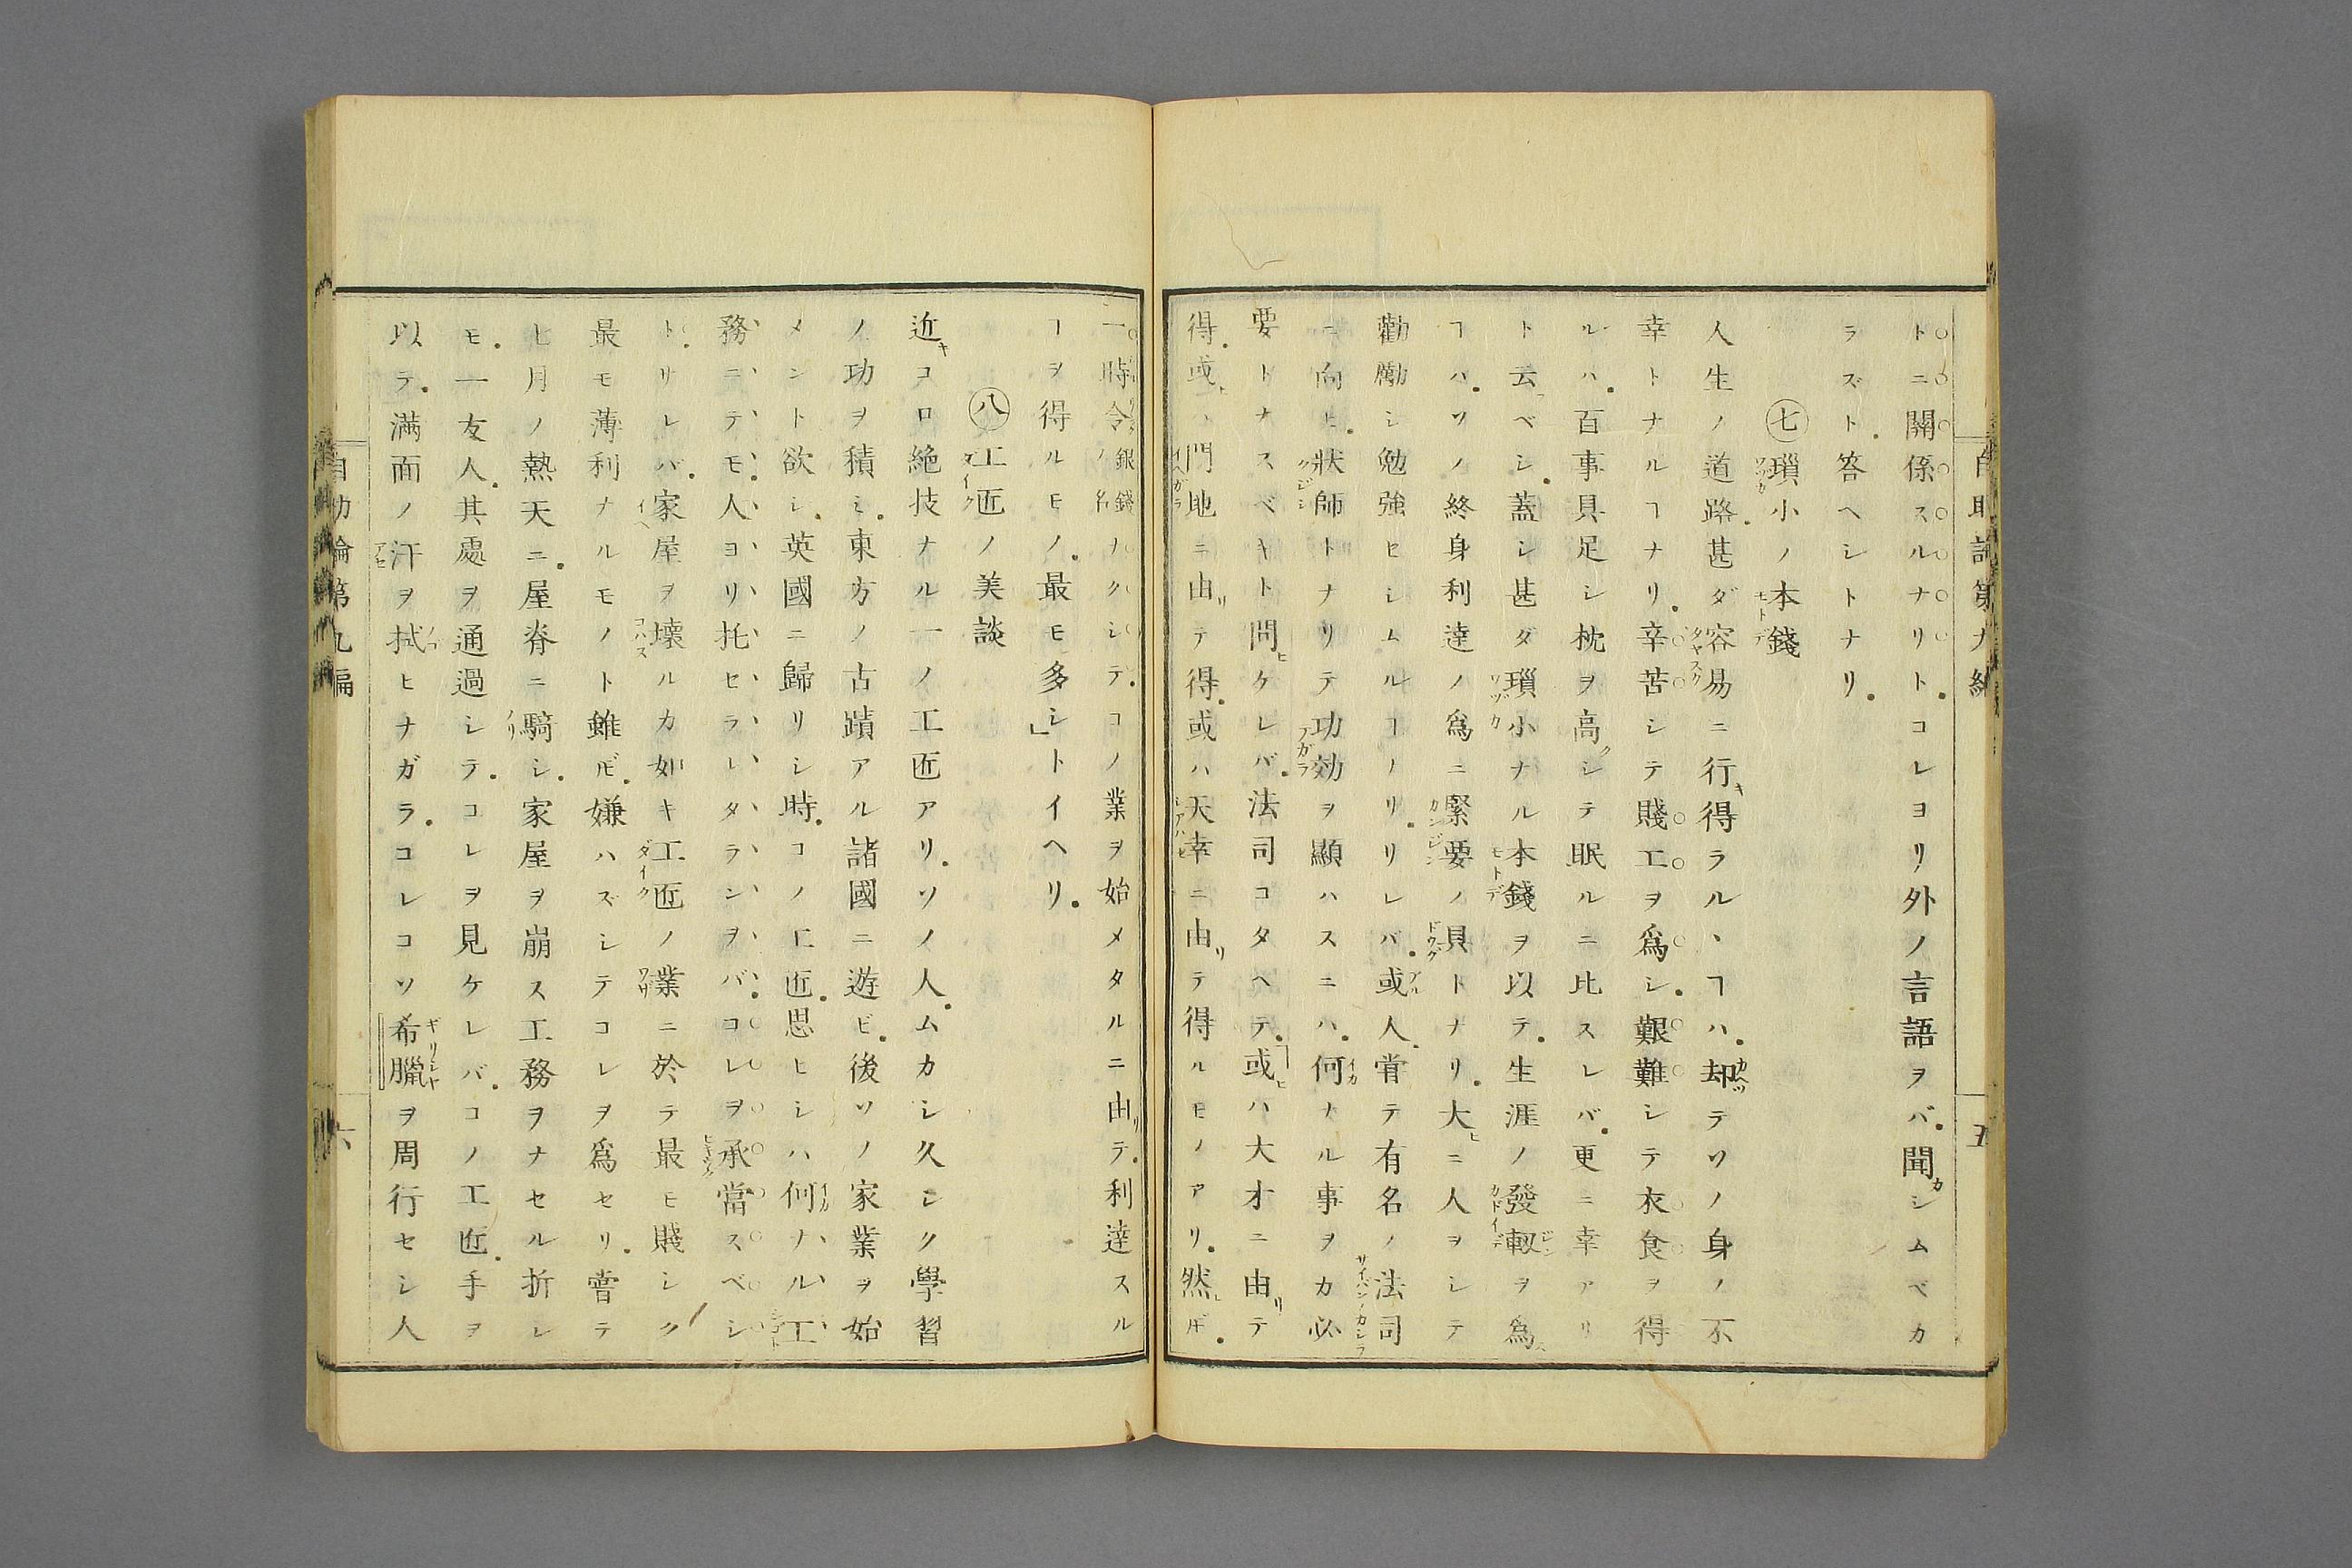 トニ關係スルナリト。コレヨリ外ノ言語ヲバ。聞カシムベカ
ラズト。答ヘシトナリ。
㊆瑣小ノ本錢
人生ノ道路。甚ダ容易ニ行キ得ラルヽヿハ。却テソノ身ノ不
幸トナルヿナリ。辛苦シテ賤工ヲ爲シ。艱難シテ衣食ヲ得
ルハ。百事具足シ枕ヲ高クシテ眠ルニ比スレバ。更ニ幸アリ
ト云ベシ。蓋シ甚ダ瑣小ナル本錢ヲ以テ。生涯ノ發軔ヲ爲ス
ヿハ。ソノ終身利達ノ爲ニ緊要ノ具トナリ。大ヒニ人ヲシテ
勸勵シ勉強セシムルヿノリ。リレバ。或人。甞テ有名ノ法司
ニ向ヒ。狀師トナリテ功効ヲ顯ハスニハ。何ナル事ヲカ必
要トナスベキト問ヒケレバ。法司コタヘテ。或ヒハ大才ニ由リテ
得。或ヒハ門地ニ由リテ得。或ハ天幸ニ由リテ得ルモノアリ。然レ𪜈。
自助論第九編
五
一時令銀錢ノ名ナクシテ。コノ業ヲ始メタルニ由リテ。利達スル
ヿヲ得ルモノ。最モ多シ」トイヘリ。
㊇工匠ノ美談
近キコロ絶技ナル一ノ工匠アリ。ソノ人。ムカシ久シク學習
ノ功ヲ積ミ。東方ノ古蹟アル諸國ニ遊ビ。後ソノ家業ヲ始
メント欲シ。英國ニ歸リシ時。コノ工匠。思ヒシハ何ナル工
務ニテモ。人ヨリ托セラレタランヲバ。コレヲ承當スベシ
ト。サレバ。家屋ヲ壞ルカ如キ工匠ノ業ニ於テ最モ賤シク
最モ薄利ナルモノト雖𪜈。嫌ハズシテコレヲ爲セリ。甞テ
七月ノ熱天ニ。屋脊ニ騎シ。家屋ヲ崩ス工務ヲナセル折レ
モ。一友人。其處ヲ通過シテ。コレヲ見ケレバ。コノ工匠。手ヲ
以テ。満面ノ汗ヲ拭ヒナガラ。コレコソ希臘ヲ周行セシ人
自助論第九編
六